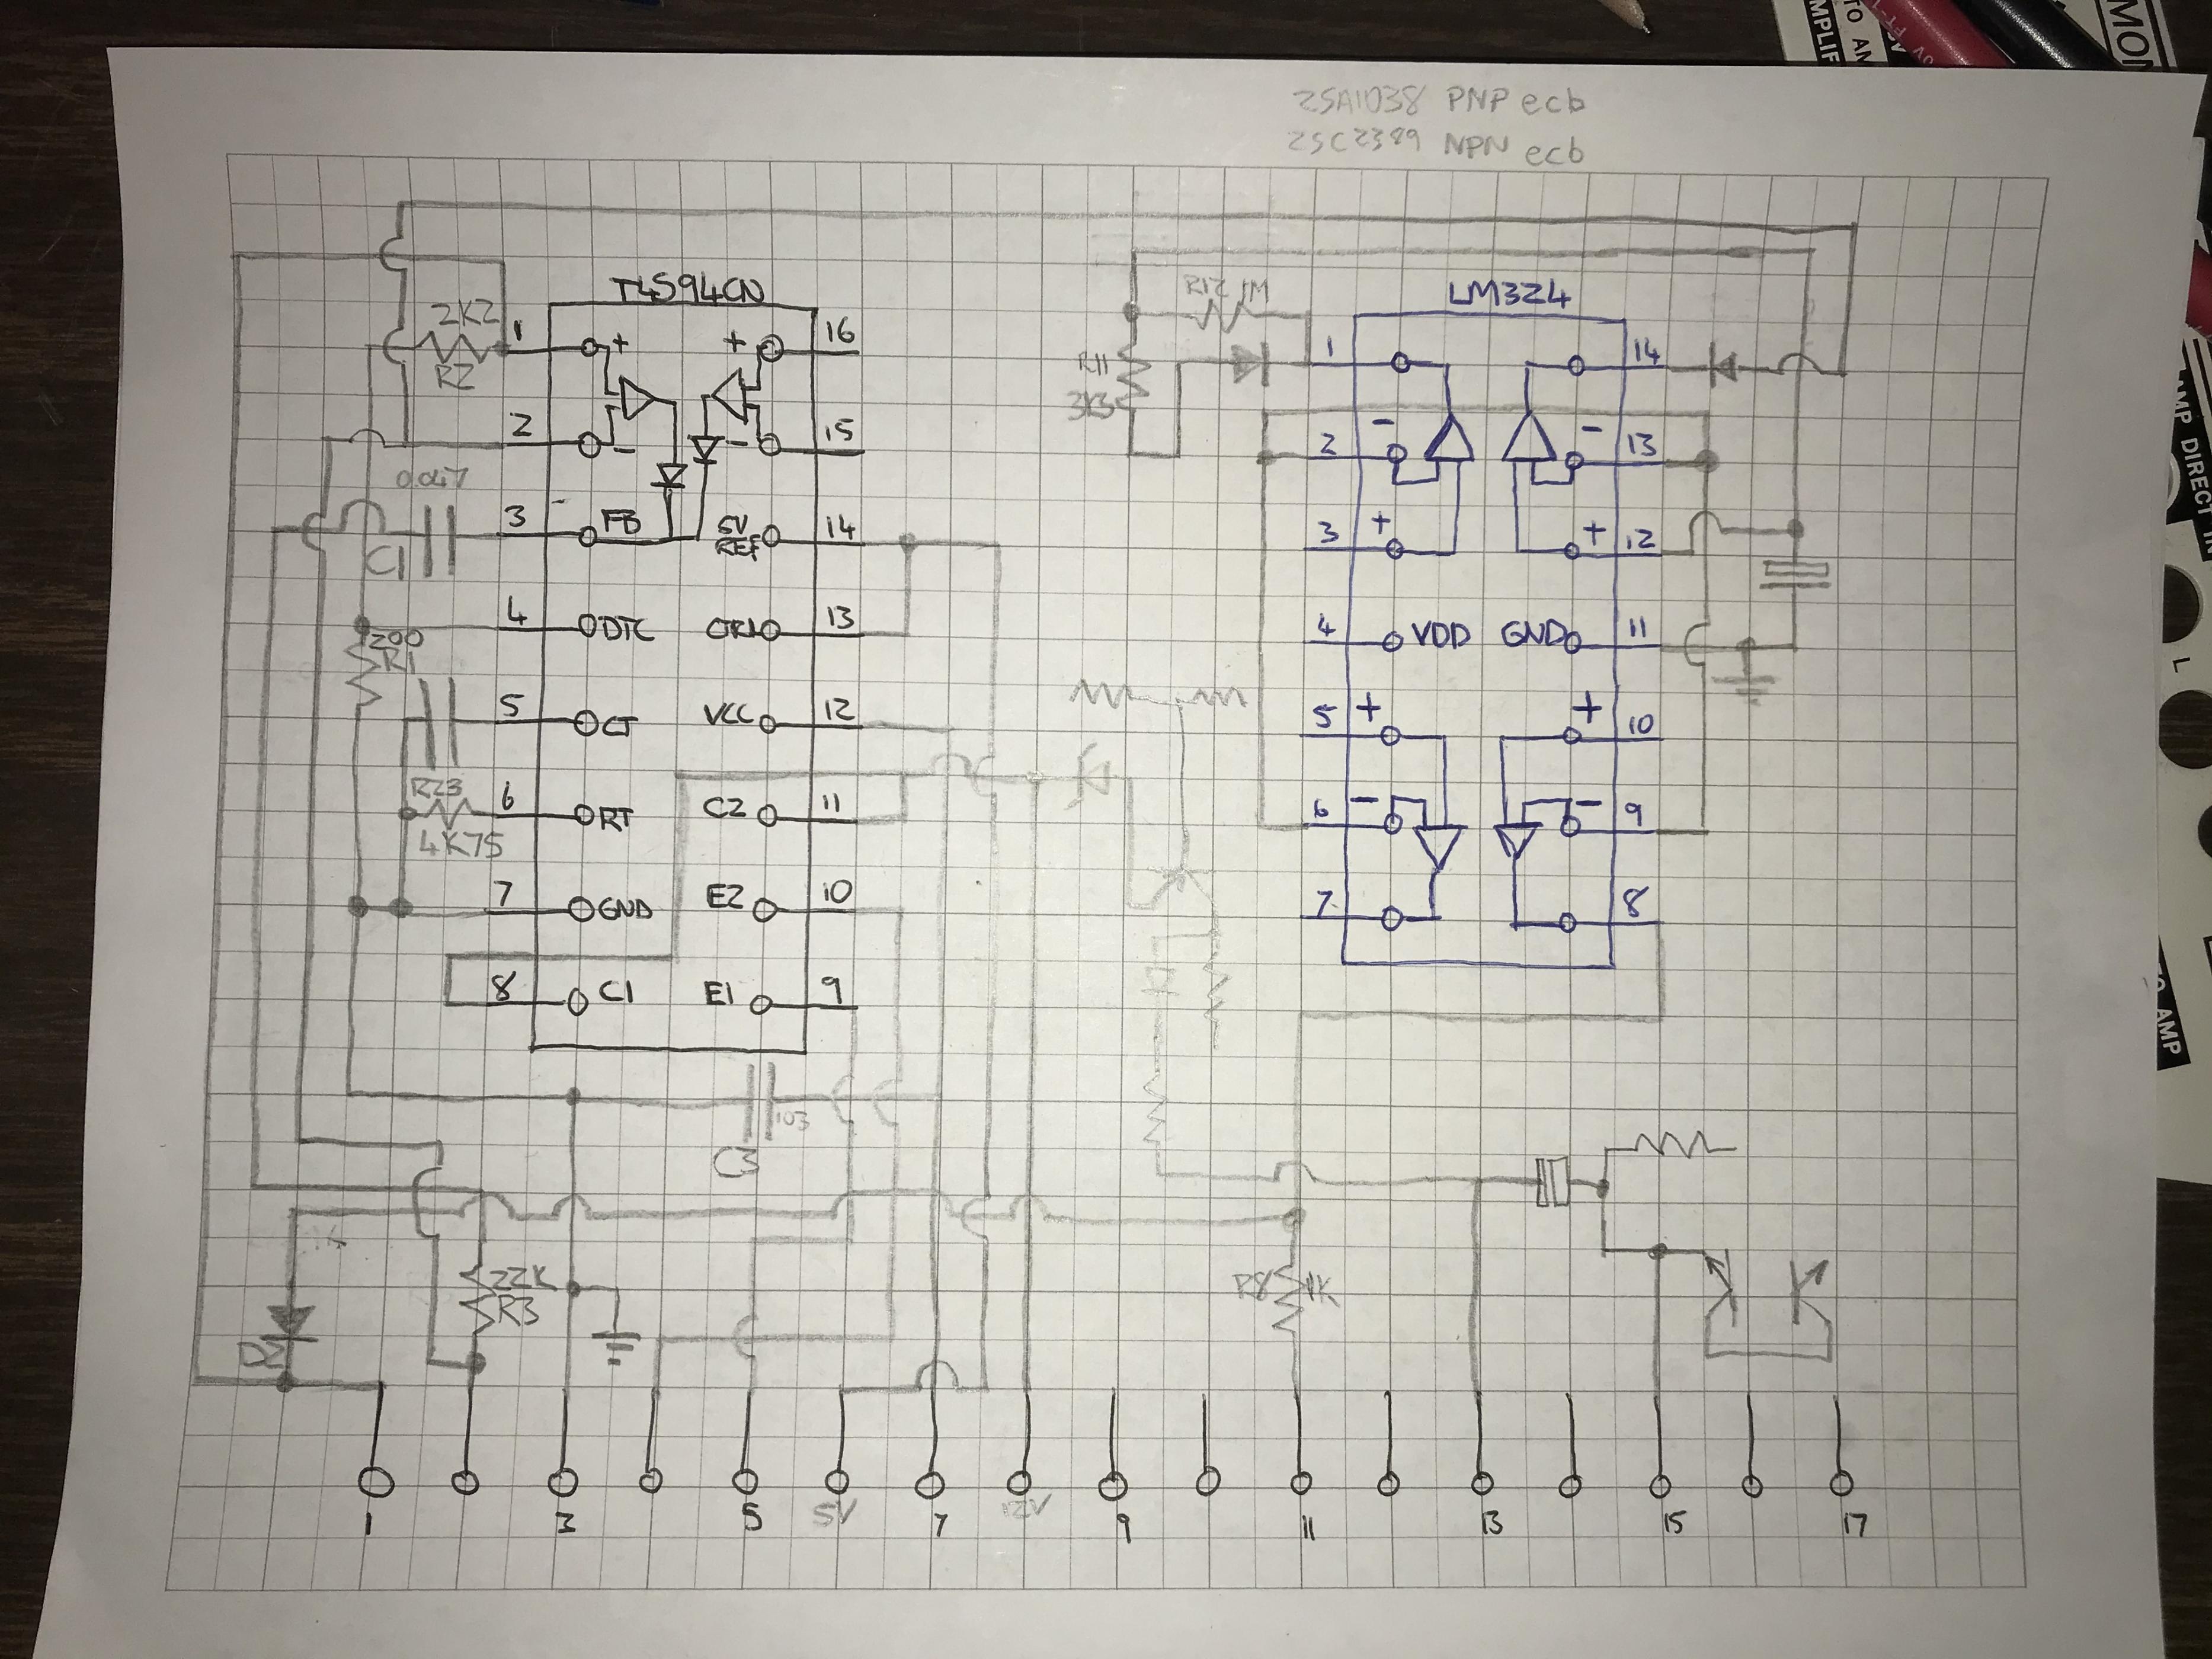 2SA1038 PNP ecb
2SC2389 NPN ecb
T4594CN
LM324
2K2
R2
1
+
+
16
2
-
-
15
0.047
C1
3
FB
5V
REF
14
4
DTC
CTRL
13
200
R1
5
CT
VCC
12
R23
4K75
6
RT
C2
11
7
GND
E2
10
8
C1
E1
9
C3
103
22K
R3
D2
R12 1M
R11
3K3
1
14
2
-
-
13
3
+
+
12
4
VDD
GND
11
5
+
+
10
6
-
-
9
7
8
R8
1K
1
3
5
5V
7
12V
9
11
13
15
17
TO AMP
MP DIRECT IN
L